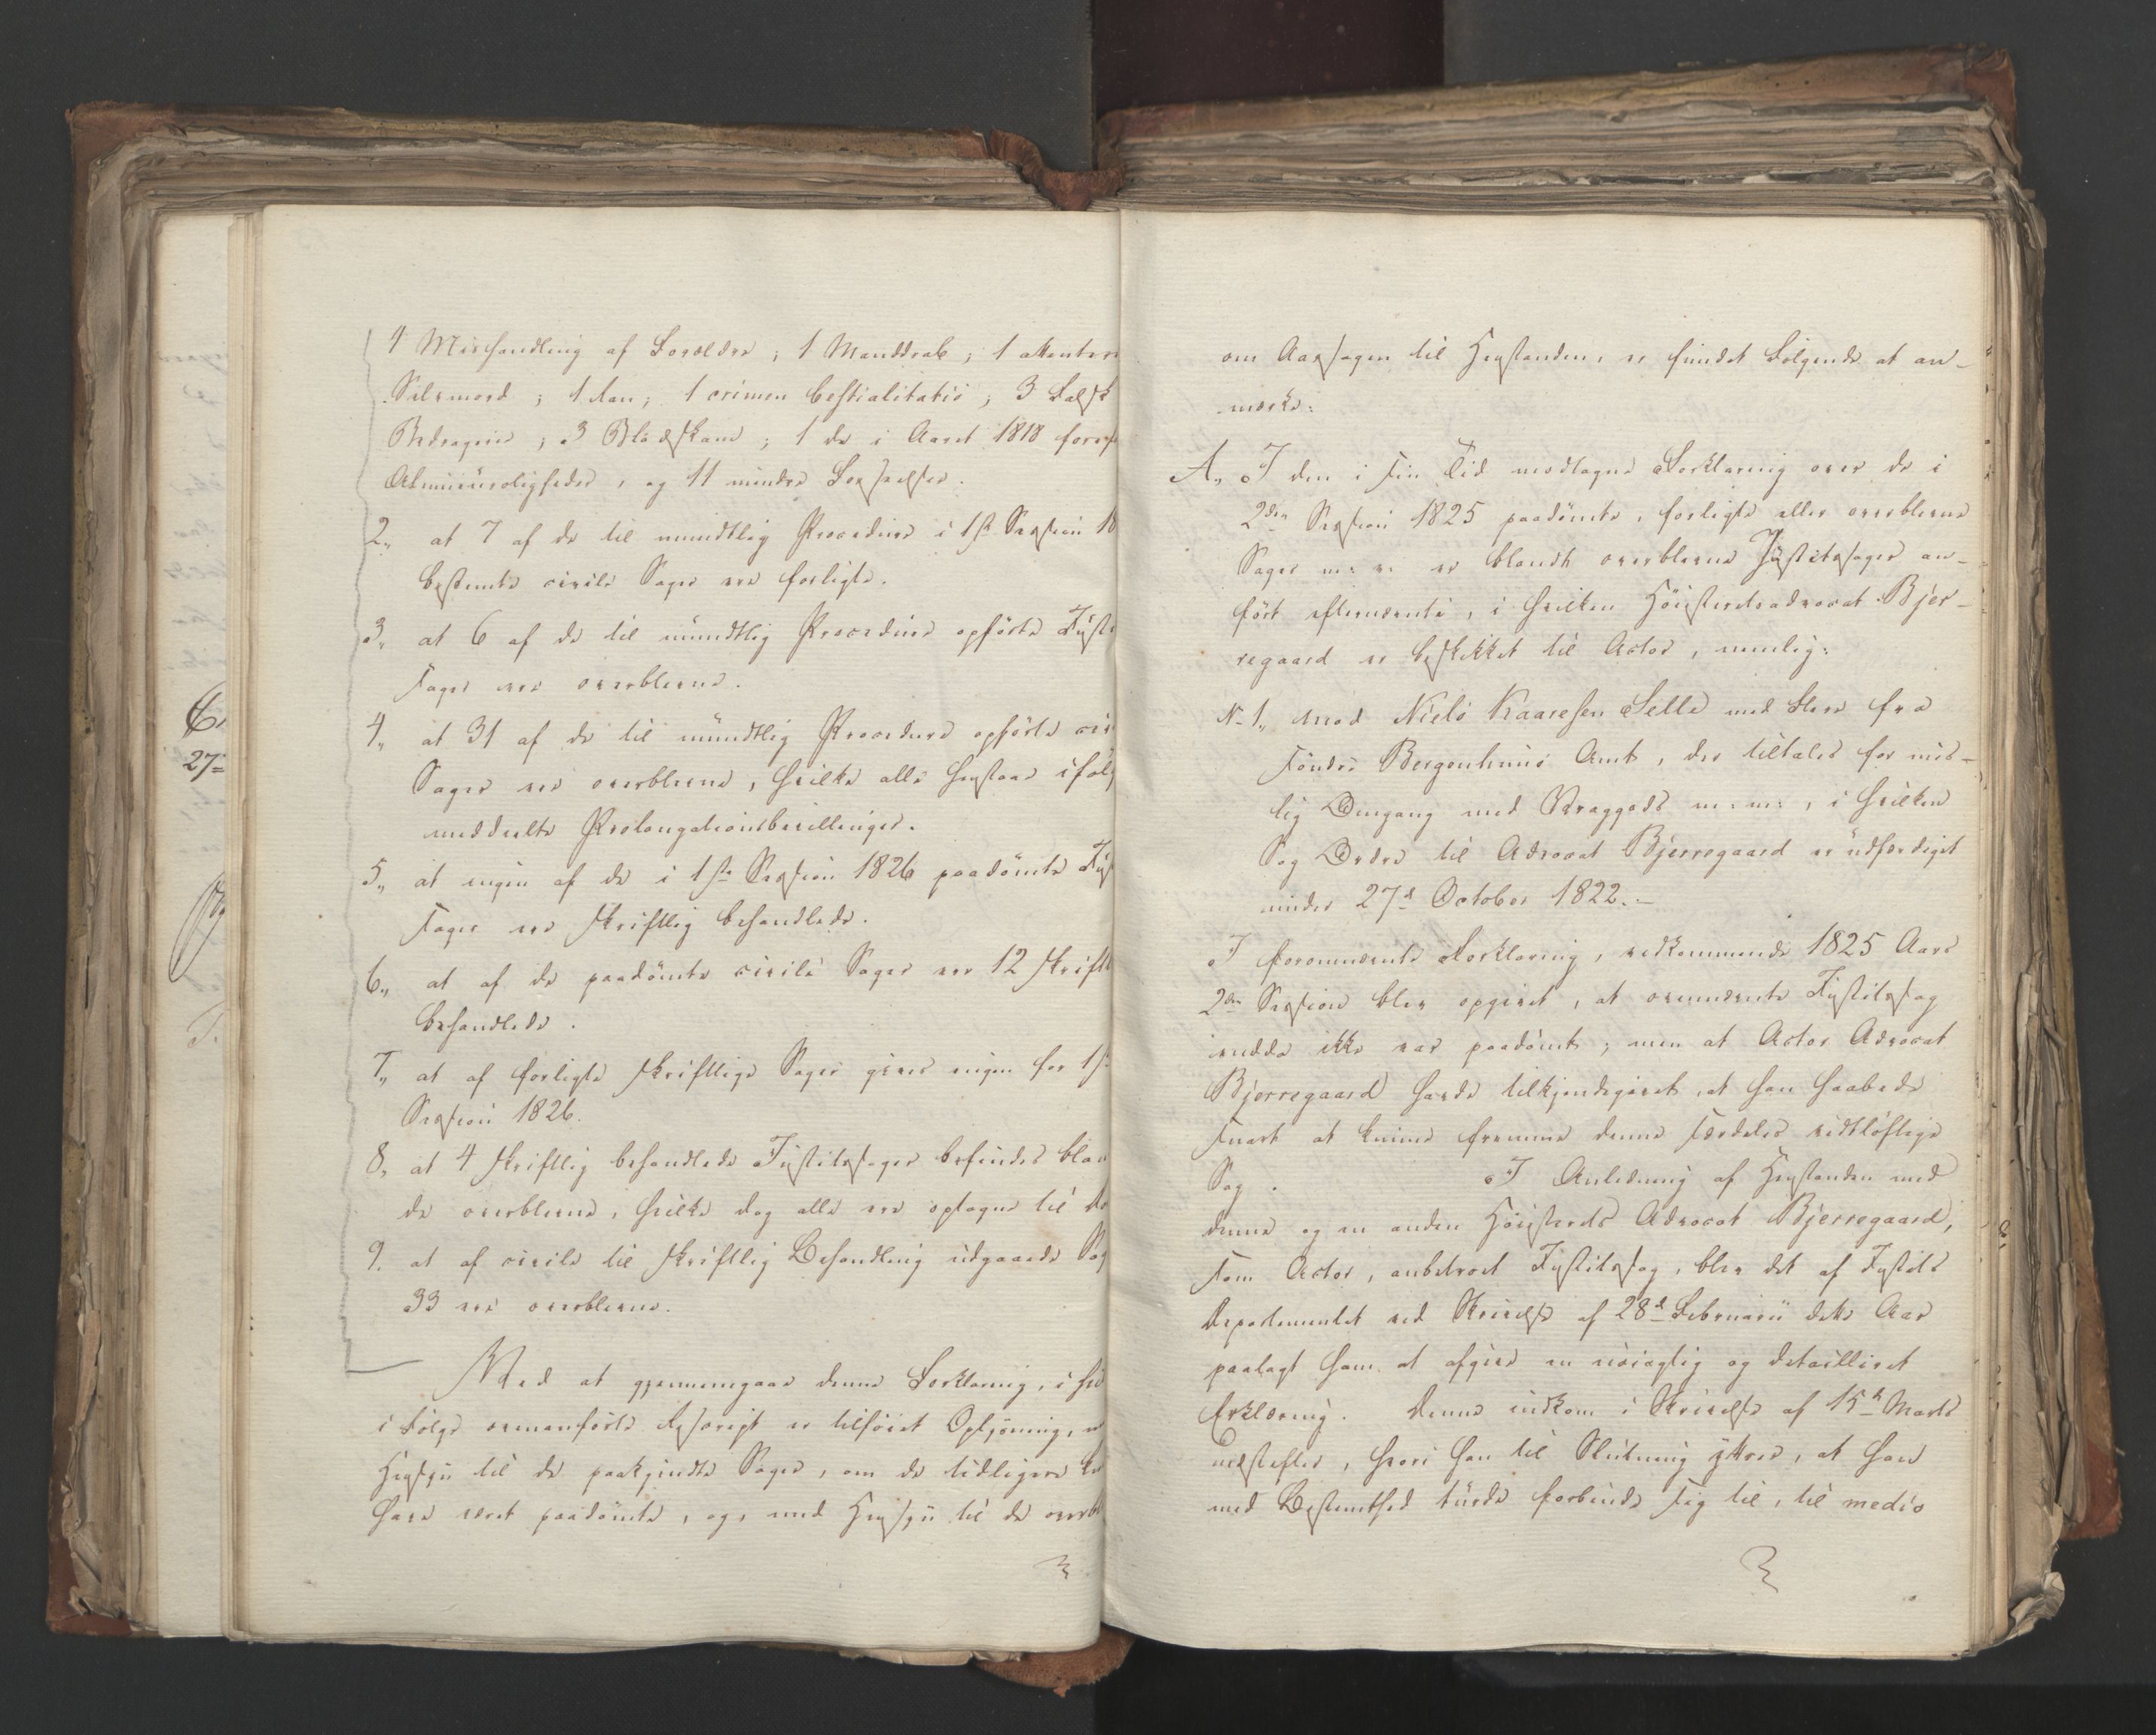 1 Mishandling af Forældre; 1 Manddrab; 1 attenteret
Selvmord; 1 Ran; 1 crimen bestialitatis; 3 Falsk
Bedragerie; 3 Blodskam; 1 de i Aaret 1818
Almueuroligheder, og 11 mindre Forseelser.
2,, at 7 af de til mundtlig Procedure i 1ste Session 18
bestemte civile Sager ere forligte.
3,, at 6 af de til mundtlig Procedure opførte Justi
sager ere overblevne.
4,, at 31 af de til mündtlig Procedure opførte civ
Sager ere overblevne, hvilke alle henstaae ifølg
meddeelte Prolongationsbevillinger.
5,, at ingen af de i 1ste Session 1826 paadømte Just
sager ere skriftlig behandlede.
6,, at af de paadømte civile Sager ere 12 skriftl
behandlede.
7,, at af forligte skriftlige Sager gives ingen for 1ste
Session 1826.
8, at 4 skriftlig behandlede Justitssager befindes blan
de overblevne, hvilke dog alle ere optagne til Do
9. at af civile til skriftlig Behandling udgaaede Sag
33 ere overblevne.
Ved at gjennemgaae denne Forklaring, i hvi
i Følge ovenanførte Rescript er tilføiet Oplysning, m
Hensyn til de paakjendte Sager, om de tidligere ku
have været paadømte, og, med Hensyn til de overbl
om Aarsagen til Henstanden, er fundet Følgende at an-
mærke:
A,, I den i sin Tid modtagne Forklaring over de i
2den Session 1825 paadømte, forligte eller overblevne
Sager m: v: er blandt overblevne Justitssager an-
ført efternævnte, i hvilken Höiesteretsadvocat Bjer-
regaard er beskikket til Actor, nemlig:
No 1,, mod Niels Kaaresen Selle med Flere fra
søndre Bergenhuus Amt, der tiltales for mis-
lig Omgang med Vraggods m: m:, i hvilken
Sag Ordre til Advocat Bjerregaard er udfærdiget
under 27d October 1822.-
I forommeldte Forklaring, vedkommende 1825 Aars
2den Session blev opgivet, at ovennævnte Justitssag
endda ikke var paadømt; men at Actor Advocat
Bjerregaard havde tilkjendegivet, at han haabede
snart at kunne fremme denne særdeles vidtløftige
Sag. I Anledning af Henstanden med
denne og en anden Höiesterets Advocat Bjerregaard,
som Actor, anbetroet Justitssag, blev det af Justits
Departementet ved Skrivelse af 28d Februarii dette Aar
paalagt ham at afgive en nøiagtig og detailleret
Erklæring. Denne indkom i Skrivelse af 15d Marts
næstefter, hvori han til Slutning yttrer, at han
med Bestemthed turde forbinde sig til, til medio